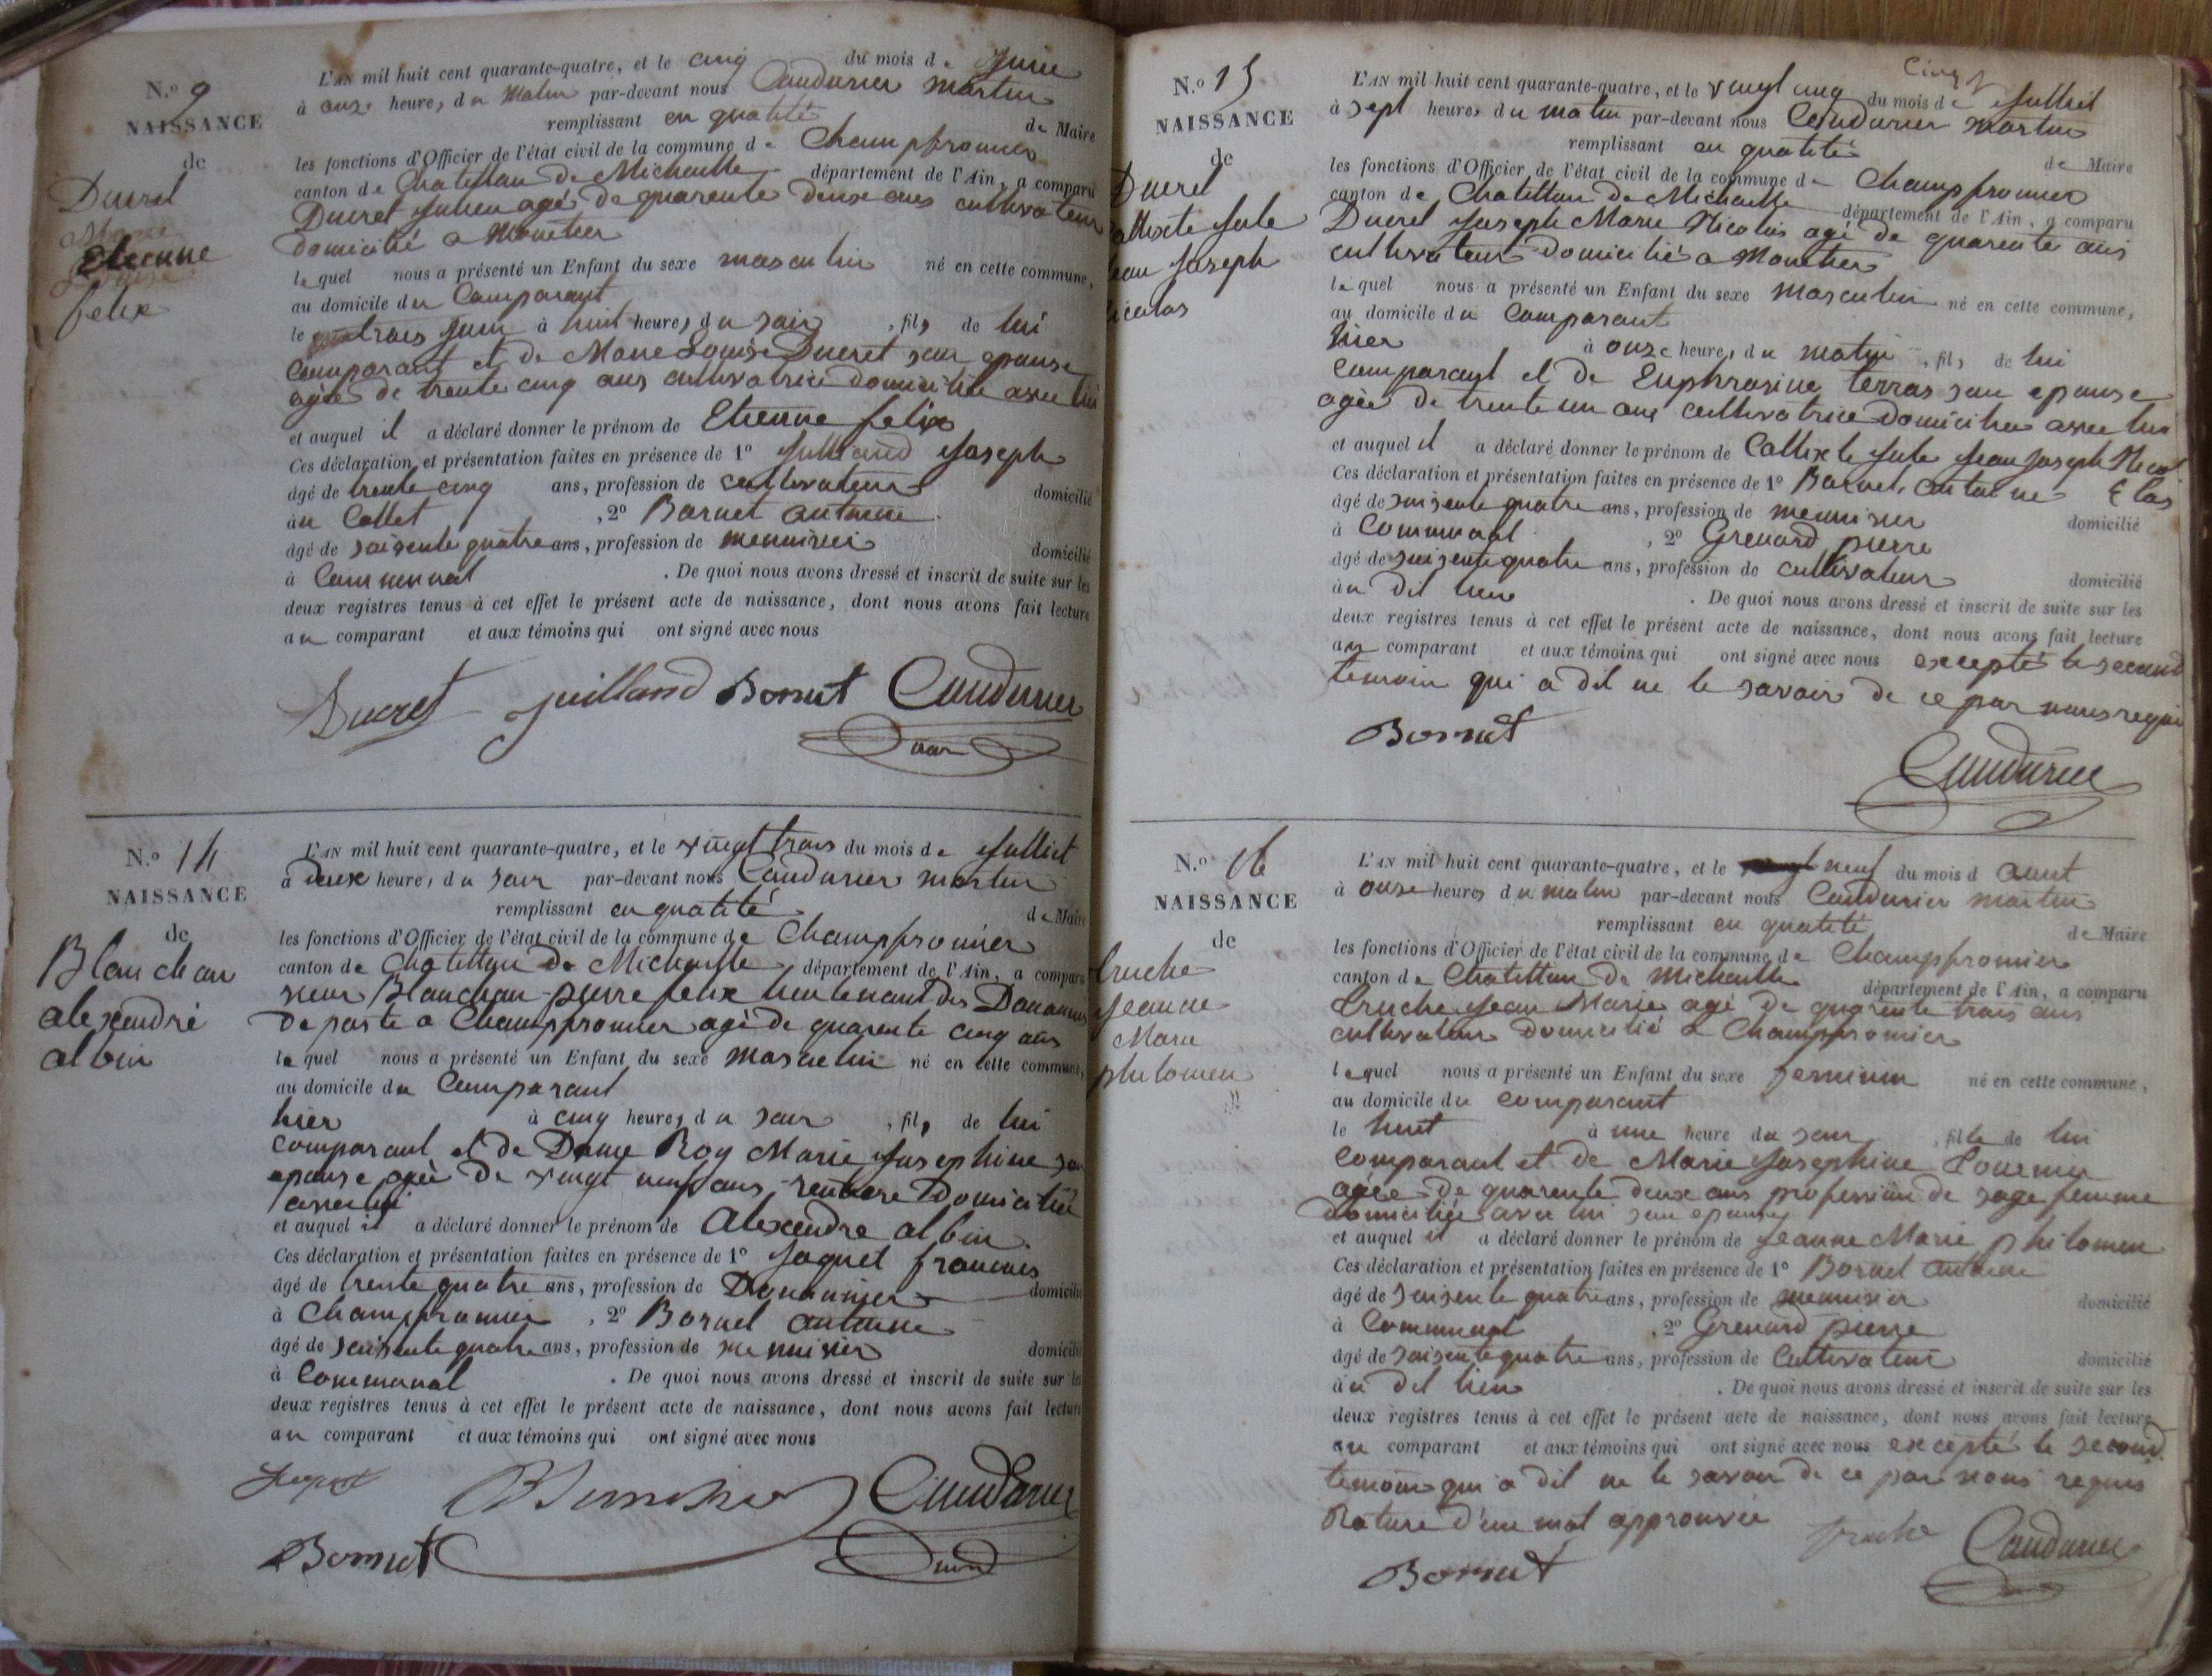 N.º 9
NAISSANCE
de
Ducret
Etienne
felix
L'AN mil huit cent quarante-quatre, et le cinq du mois de Juin
à onze heures du matin par-devant nous Caudurier martin
remplissant en qualité de Maire
les fonctions d'Officier de l'état civil de la commune de Champfromier
canton de Chatillon De Michaille département de l'Ain, a comparu
Ducret Julien agé De quarente deux ans cultivateur
domicilié a Monetier
lequel nous a présenté un Enfant du sexe masculin né en cette commune,
au domicile du Comparant
le trois Juin à huit heures du soir, fils de lui
comparant et de Marie Louise Ducret son epouse
agée de trente cinq ans cultivatrice domiciliée avec lui
et auquel il a déclaré donner le prénom de Etienne felix
Ces déclaration et présentation faites en présence de 1º Juilland Joseph
âgé de trente cinq ans, profession de cultivateur domicilié
au Collet, 2º Bornet antoine
âgé de soisente quatre ans, profession de menuisier domicilié
à Communal. De quoi nous avons dressé et inscrit de suite sur les
deux registres tenus à cet effet le présent acte de naissance, dont nous avons fait lecture
au comparant et aux témoins qui ont signé avec nous
Ducret Juilland Bornet Caudurier
N.º 14
NAISSANCE
de
Blanchau
alexendre
albin
L'AN mil huit cent quarante-quatre, et le vingt trois du mois de Julliet
à deux heures du soir par-devant nous Caudurier martin
remplissant en qualité de Maire
les fonctions d'Officier de l'état civil de la commune de Champfromier
canton de Chatillon De Michaille département de l'Ain, a comparu
sieur Blanchau pierre felix lieutenant Des Douannes
De poste a Champfromier agé de quarente cinq ans
lequel nous a présenté un Enfant du sexe masculin né en cette commune,
au domicile du Comparant
hier à cinq heures du soir, fils de lui
comparant et de Dame Roy Marie Josephine son
epouse agée De vingt neuf ans rentiere Domiciliée
avec lui
et auquel il a déclaré donner le prénom de Alexendre albin
Ces déclaration et présentation faites en présence de 1º Jaquet francois
âgé de trente quatre ans, profession de Douannier domicilié
à Champfromier, 2º Bornet antoine
âgé de soisente quatre ans, profession de menuisier domicilié
à Communal. De quoi nous avons dressé et inscrit de suite sur les
deux registres tenus à cet effet le présent acte de naissance, dont nous avons fait lecture
au comparant et aux témoins qui ont signé avec nous
Jaquet Caudurier
Bornet
N.º 15
NAISSANCE
de
Ducret
allixte Jule
ean Joseph
icolas
L'AN mil huit cent quarante-quatre, et le vingt cinq du mois de Julliet
à sept heures du matin par-devant nous Caudurier martin
remplissant en qualité de Maire
les fonctions d'Officier de l'état civil de la commune de Champfromier
canton de Chatillon De Michaille département de l'Ain, a comparu
Ducret Joseph Marie Nicolas agé de quarente ans
cultivateur Domicilié a Monetier
lequel nous a présenté un Enfant du sexe masculin né en cette commune,
au domicile du Comparant
hier à onze heures du matin, fils de lui
comparant et de Euphrasine terras son epouse
agée De trente un ans cultivatrice Domiciliée avec lui
et auquel il a déclaré donner le prénom de Callixte Jule Jean Joseph Nicol
Ces déclaration et présentation faites en présence de 1º Bornet antoine
âgé de soisente quatre ans, profession de menuisier domicilié
à Communal, 2º Grenard pierre
âgé de soisente quatre ans, profession de cultivateur domicilié
au Dit lieu. De quoi nous avons dressé et inscrit de suite sur les
deux registres tenus à cet effet le présent acte de naissance, dont nous avons fait lecture
au comparant et aux témoins qui ont signé avec nous excepté le second
temoin qui a dit ne le savoir de ce par nous requis
Bornet
Caudurier
N.º 16
NAISSANCE
de
truche
Jeanne
Marie
philomen
L'AN mil huit cent quarante-quatre, et le neuf du mois d aout
à onze heures du matin par-devant nous Caudurier martin
remplissant en qualité de Maire
les fonctions d'Officier de l'état civil de la commune de Champfromier
canton de Chatillon De Michaille département de l'Ain, a comparu
truche Jean Marie agé De quarente trois ans
cultivateur Domicilié a Champfromier
lequel nous a présenté un Enfant du sexe feminin né en cette commune,
au domicile du comparant
le huit à une heure du soir, fille de lui
comparant et de Marie Josephine tournier
agée De quarente deux ans profession de sage femme
domiciliée avec lui son epouse
et auquel il a déclaré donner le prénom de Jeanne Marie philomen
Ces déclaration et présentation faites en présence de 1º Bornet antoine
âgé de soisente quatre ans, profession de menuisier domicilié
à Communal, 2º Grenard pierre
âgé de soisente quatre ans, profession de Cultivateur domicilié
au dit lieu. De quoi nous avons dressé et inscrit de suite sur les
deux registres tenus à cet effet le présent acte de naissance, dont nous avons fait lecture
au comparant et aux témoins qui ont signé avec nous excepté le second
temoin qui a dit ne le savoir De ce par nous requis
Rature D'un mot approuvée
truche Caudurier
Bornet